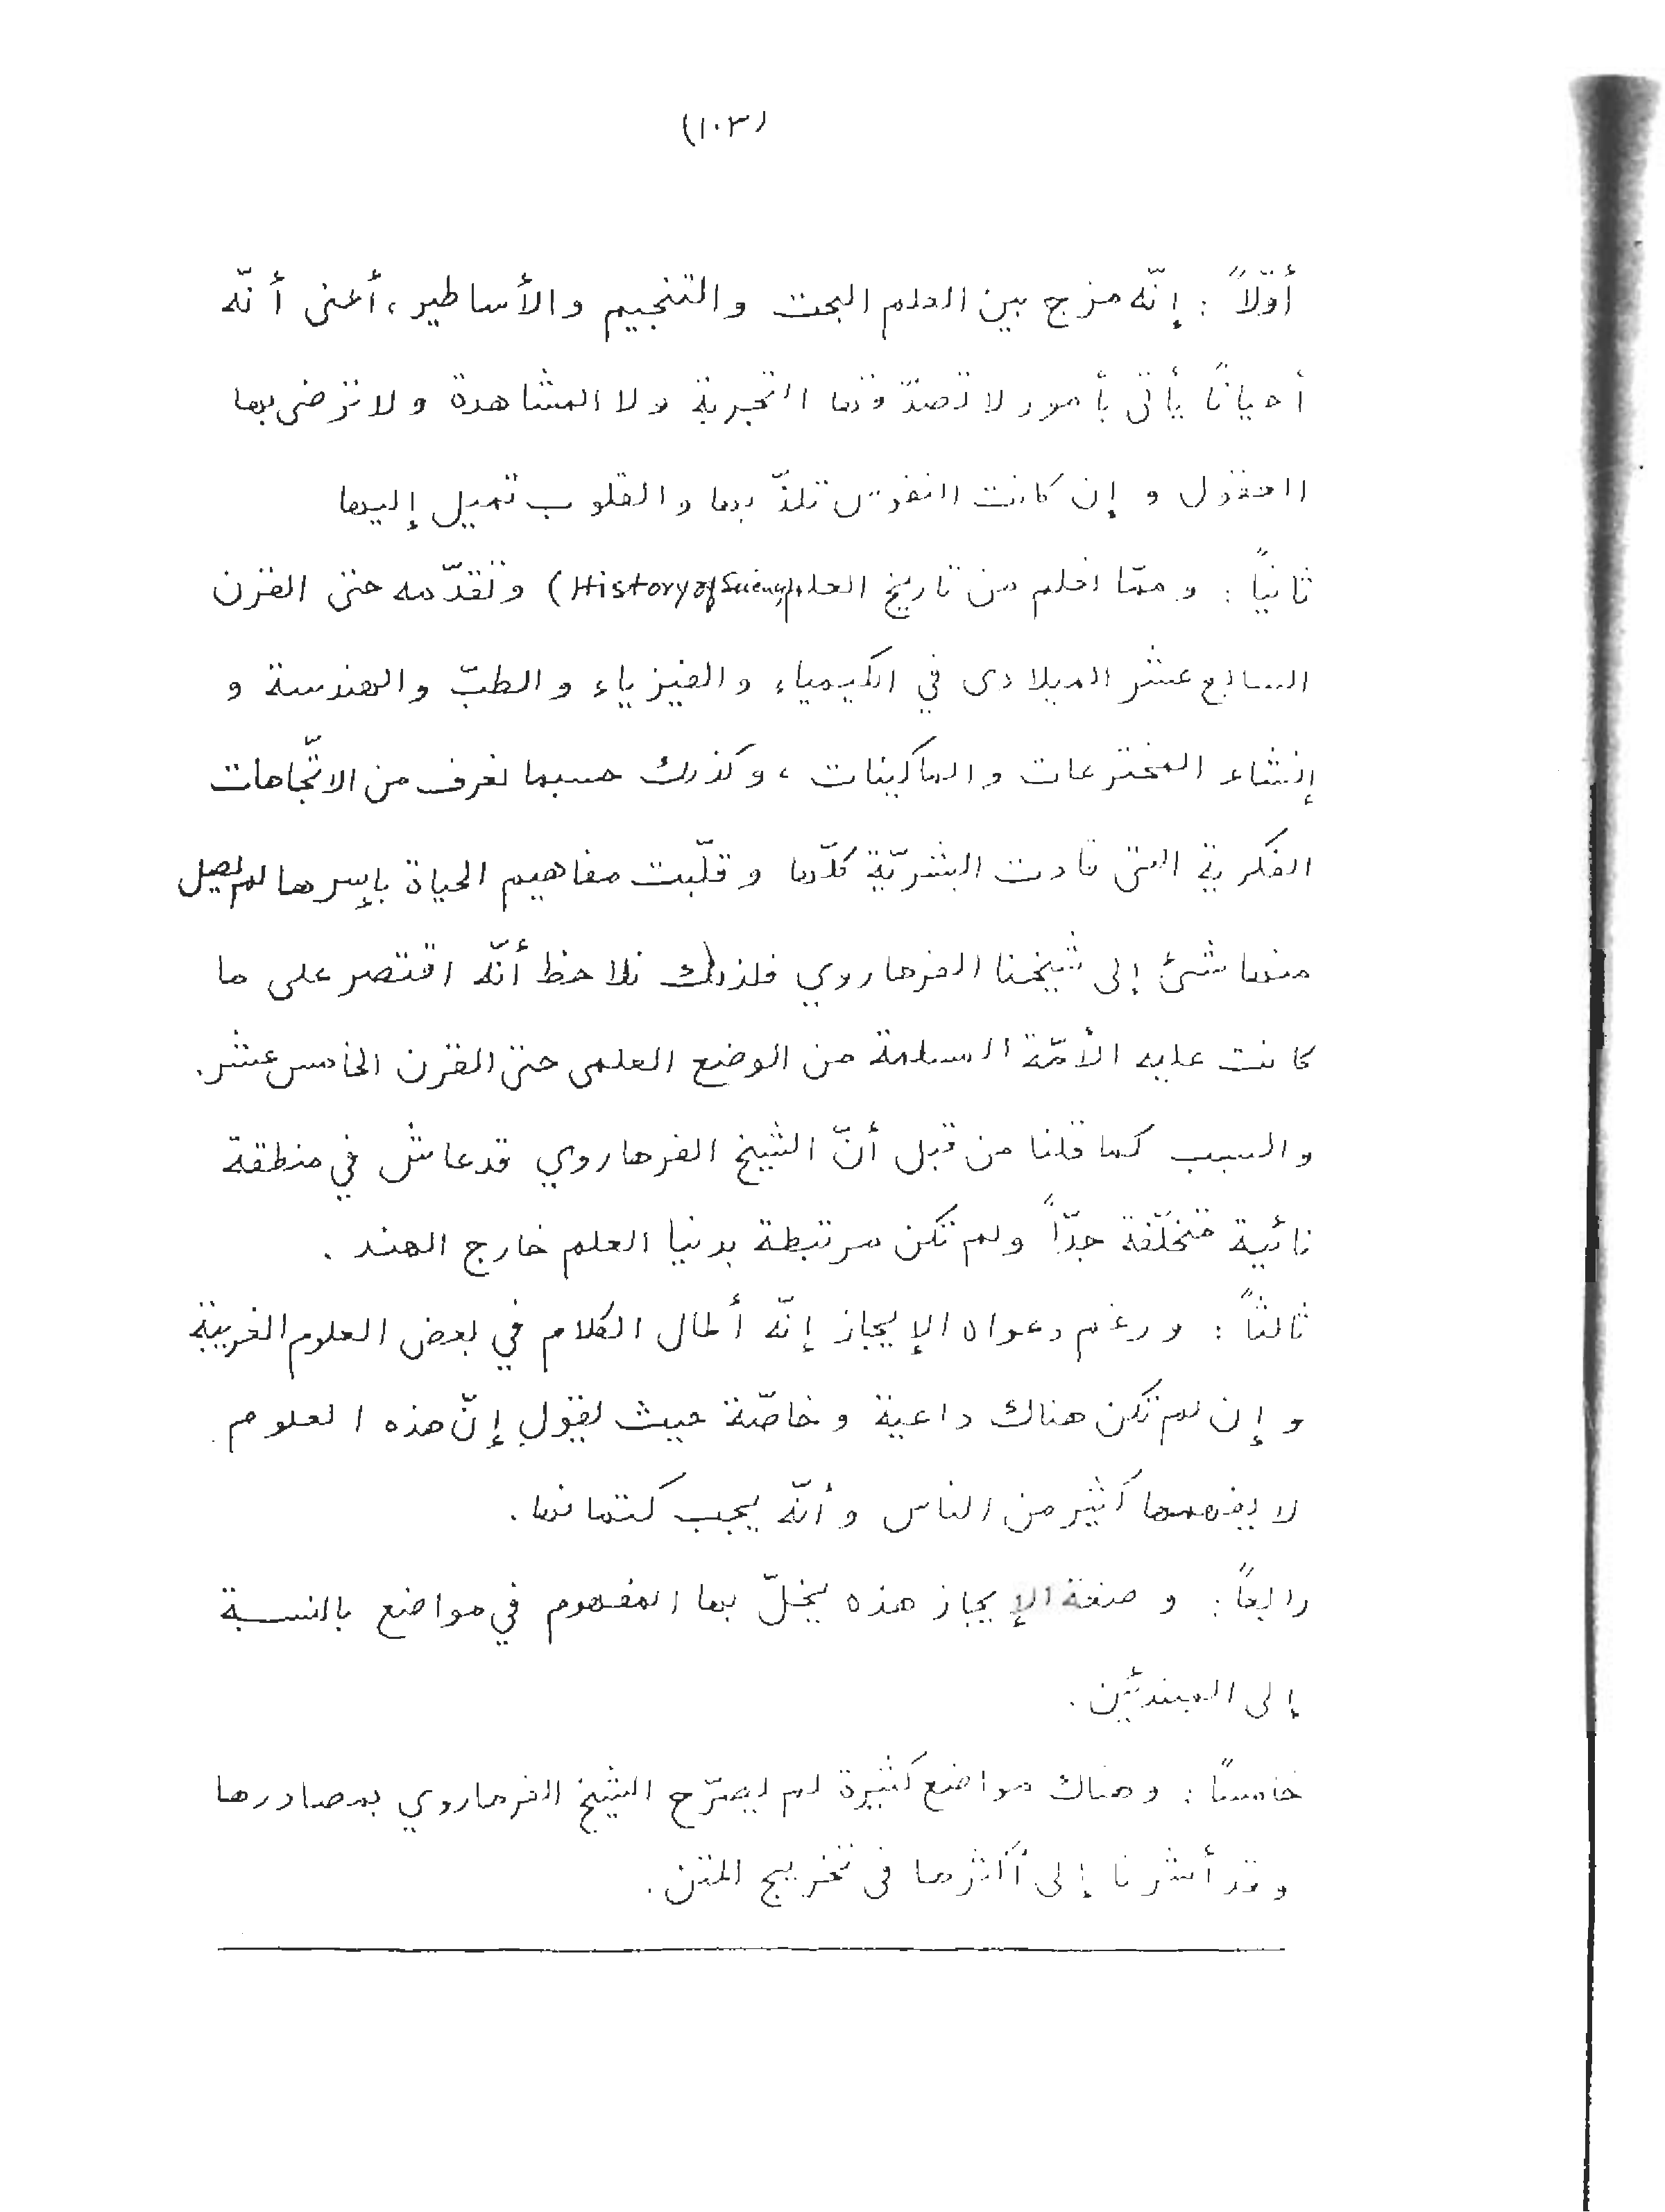 (١٠٣)
أوّلاً : إنّه مزج بين العلم البحت والتنجيم والأساطير ، أعنى أنّه
أحياناً يأتى بأمور لا تصدّقها التجربة ولا المشاهدة ولا ترضى بها
العقول و إن كانت النفوس تلذّ بها والقلوب تميل إليها
ثانياً : و ممّا نعلم من تاريخ العلم (History of Science) وتقدّمه حتى القرن
السابع عشر الميلادى في الكيمياء والفيزياء و الطبّ والهندسة و
إنشاء المخترعات والماكينات ، وكذلك حسبما نعرف من الاتّجاهات
الفكرية التى قادت البشريّة كلّها وقلّبت مفاهيم الحياة بإسرها لم يصل
منها شئ إلى شيخنا الفرهاروي فلذلك نلاحظ أنّه اقتصر على ما
كانت عليه الأمّة المسلمة من الوضع العلمى حتى القرن الخامس عشر.
والسبب كما قلنا من قبل أنّ الشيخ الفرهاروي قد عاش في منطقة
نائية متخلّفة جدّاً ولم تكن مرتبطة بدنيا العلم خارج الهند .
ثالثاً : و رغم دعواه الإيجاز إنّه أطال الكلام في بعض العلوم الغريبة
و إن لم تكن هناك داعية و خاصّة حيث يقول إنّ هذه العلوم
لا يفهمها كثير من الناس و أنّه يجب كتمانها .
رابعاً : و صنعة الإيجاز هذه يخلّ بها المفهوم في مواضع بالنسبة
إلى المبتدئين .
خامساً : وهناك مواضع كثيرة لم يصرّح الشيخ الفرهاروي بمصادرها
وقد أشرنا إلى أكثرها فى تخريج المتن .